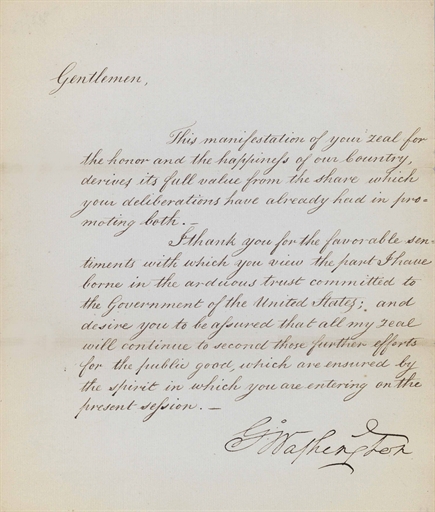 Gentlemen,
This manifestation of your zeal for
the honor and the happiness of our Country,
derives its full value from the share which
your deliberations have already had in pro-
moting both. —
I thank you for the favorable sen-
timents with which you view the part I have
borne in the arduous trust committed to
the Government of the United States; and
desire you to be assured that all my zeal
will continue to second those further efforts
for the public good, which are ensured by
the spirit in which you are entering on the
present session. —
Go Washington